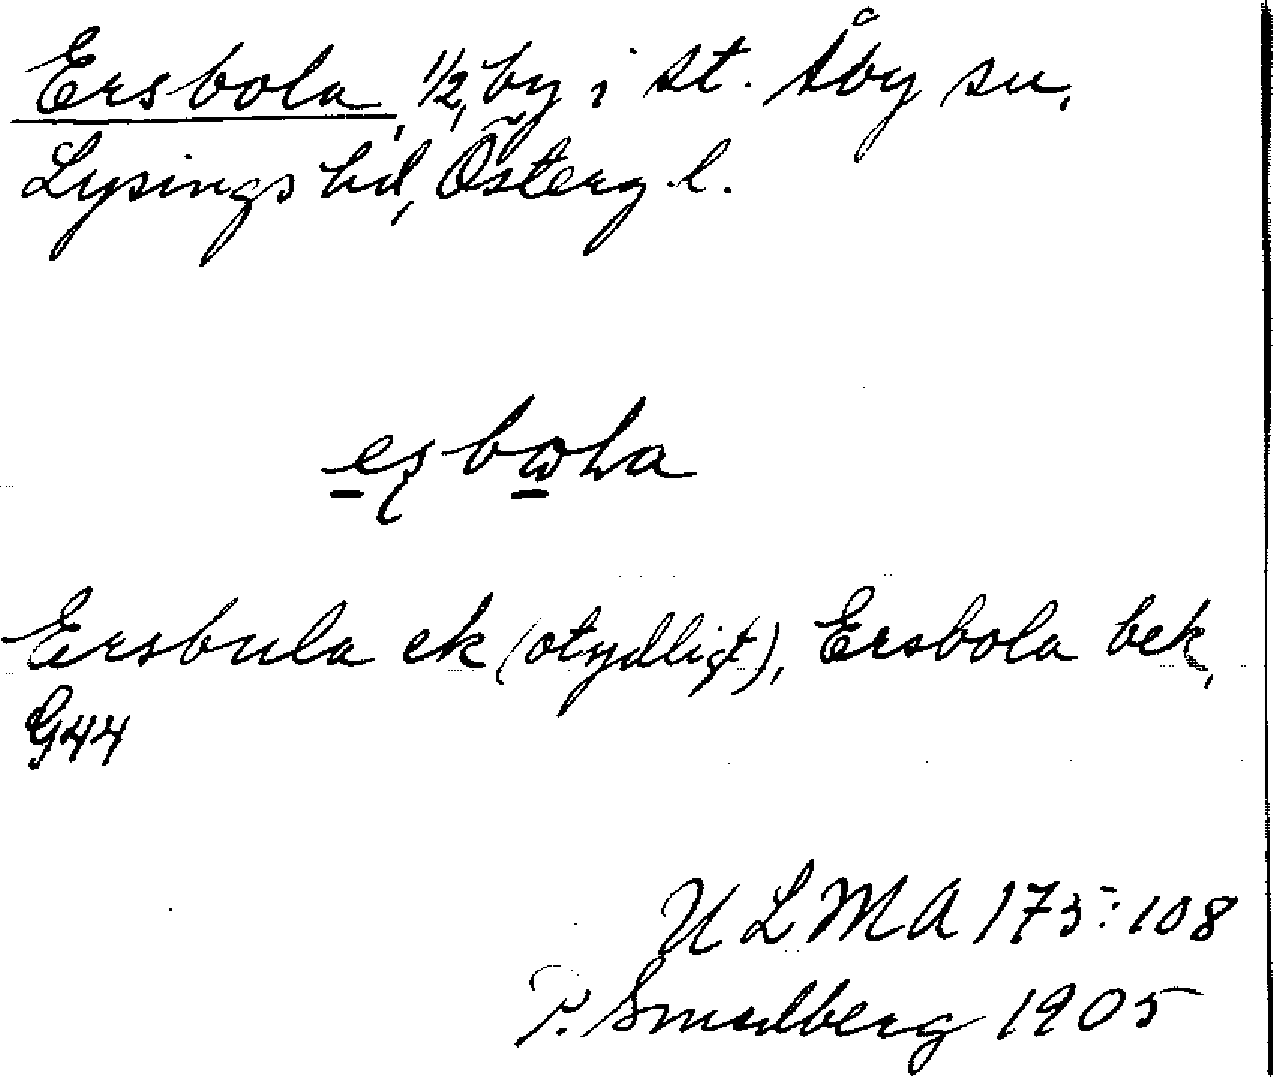 Ersbola, 1/2, by i St. Åby sn,
Lysings hd, Österg. l.
Ersbula ek (otydligt), Ersbola bek,
G44
ULMA 175:108
P. Smedberg 1905